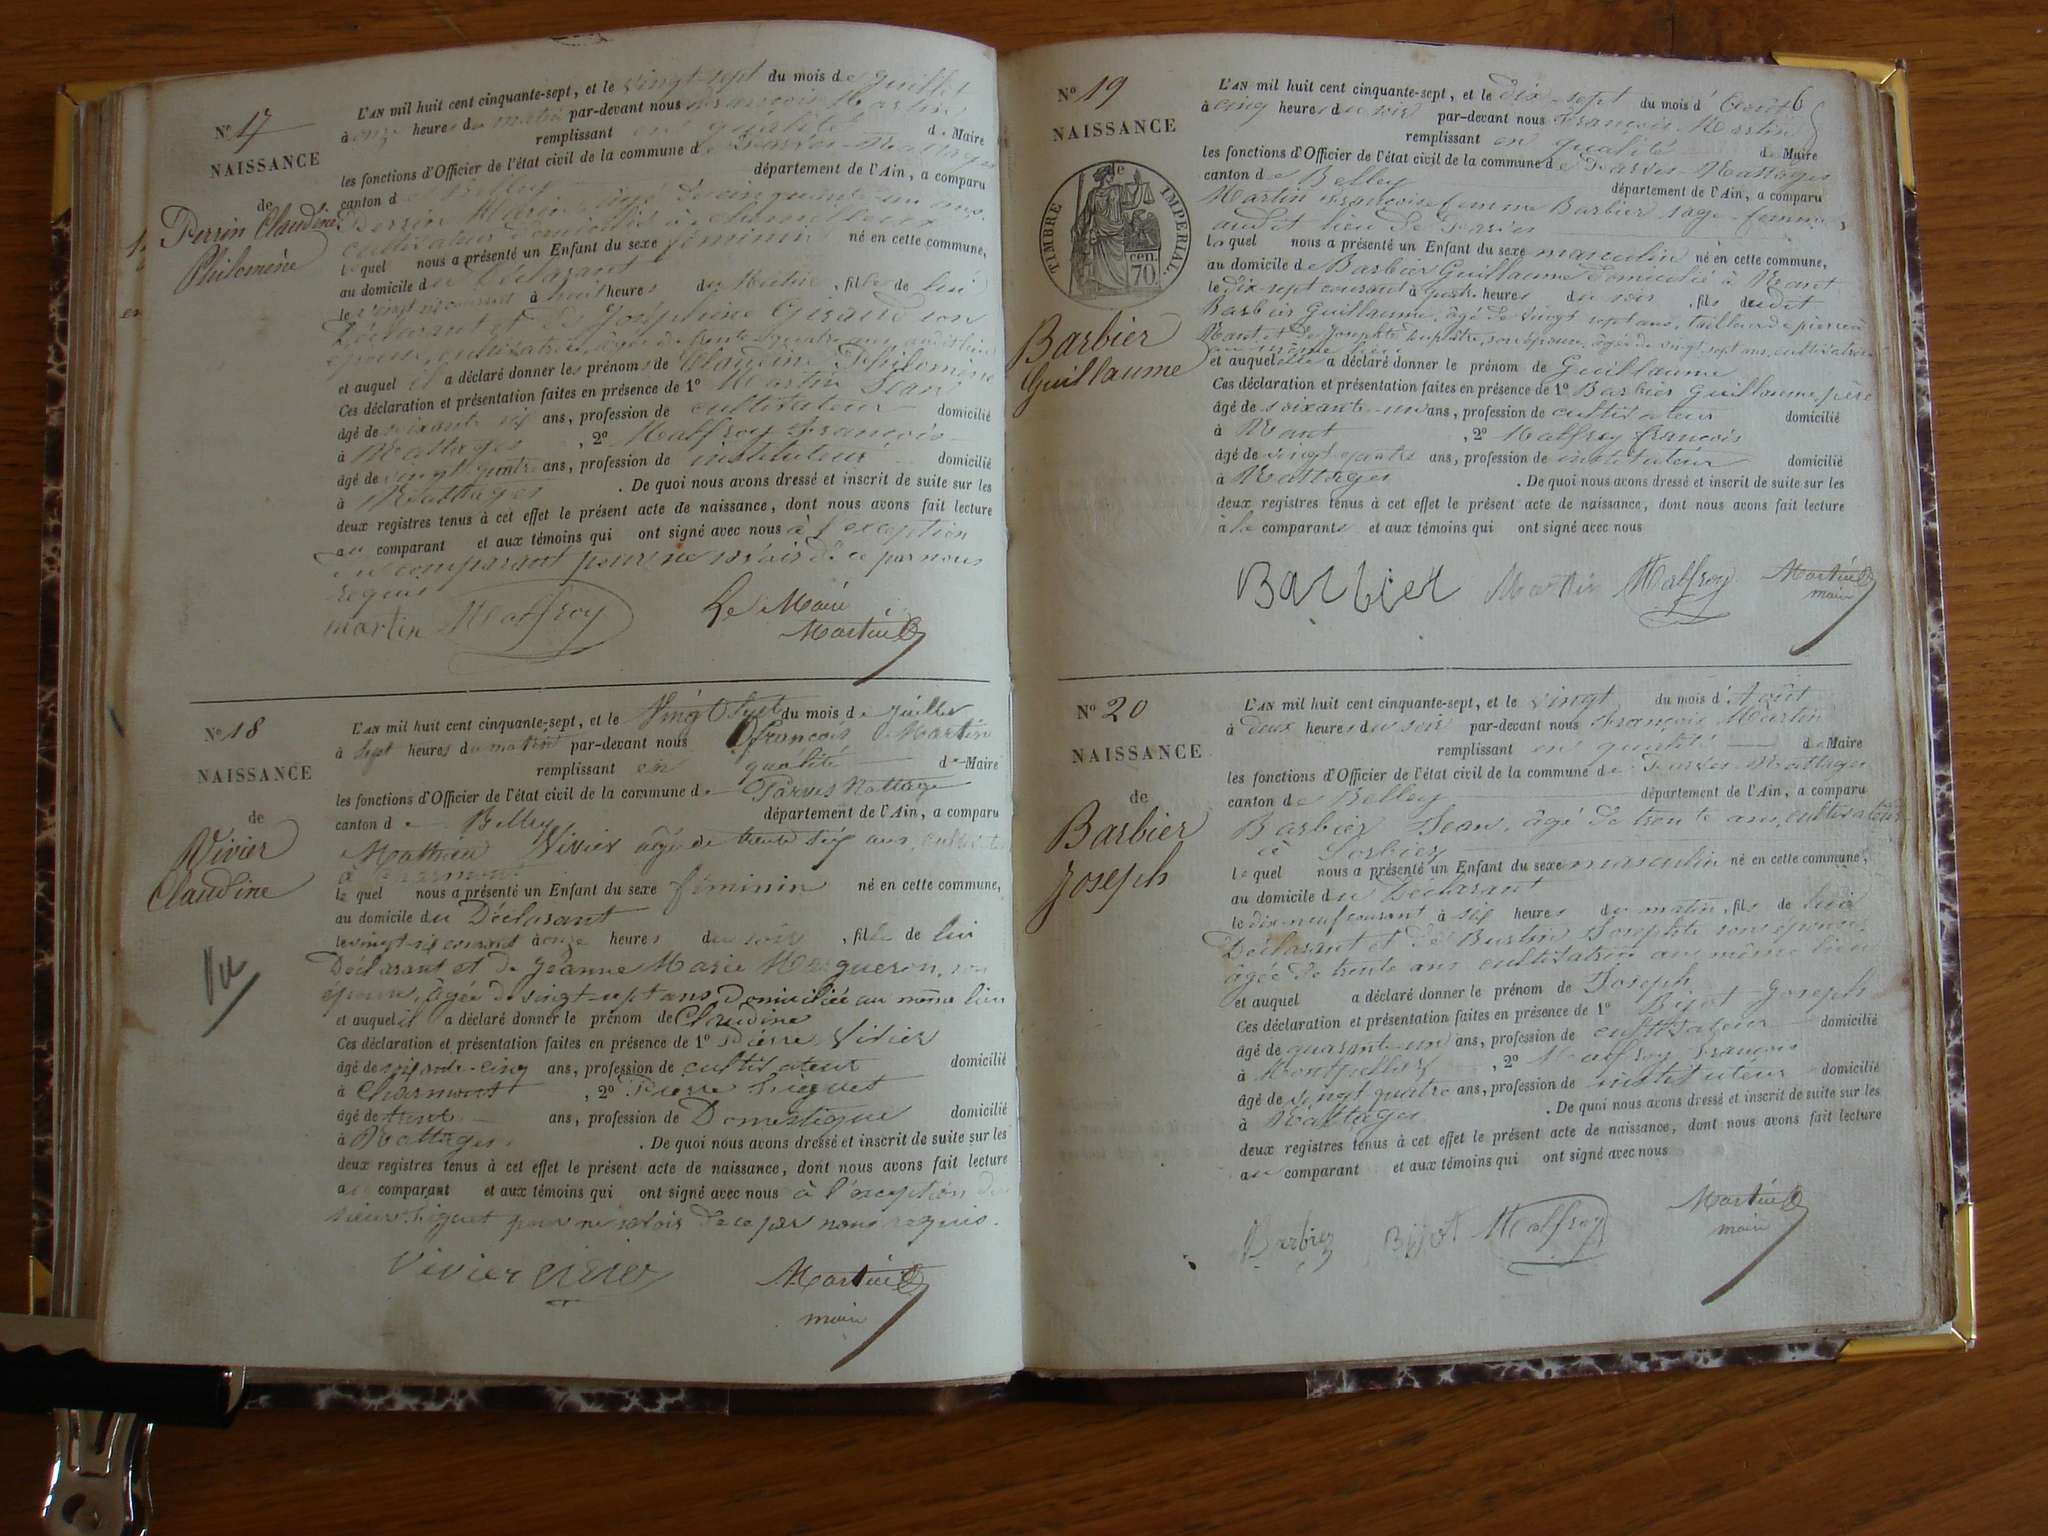 Nº 17
NAISSANCE
de
Perrin Claudine
Philomène
L'AN mil huit cent cinquante-sept, et le vingt-sept du mois de Juillet
à onze heures du matin par-devant nous François Martin
remplissant en qualité de Maire
les fonctions d'Officier de l'état civil de la commune de Parves-Nattages
canton de Belley département de l'Ain, a comparu
Perrin âgé de cinquante-un ans,
cultivateur domicilié à
lequel nous a présenté un Enfant du sexe féminin né en cette commune,
au domicile du Déclarant
le vingt courant à huit heures du Matin, fille de lui
Déclarant et de Joséphine Giraud son
épouse, cultivatrice, âgée de trente-quatre ans, audit lieu
et auquel il a déclaré donner les prénoms de Claudine Philomène
Ces déclaration et présentation faites en présence de 1º Martin Jean
âgé de soixante six ans, profession de cultivateur domicilié
à Nattages, 2º Malfroy François
âgé de vingt quatre ans, profession de instituteur domicilié
à Nattages. De quoi nous avons dressé et inscrit de suite sur les
deux registres tenus à cet effet le présent acte de naissance, dont nous avons fait lecture
au comparant et aux témoins qui ont signé avec nous à l'exception
du comparant pour ne savoir de ce par nous
requis
martin Malfroy Le Maire
Martin
Nº 18
NAISSANCE
de
Vivier
Claudine
Vu
L'AN mil huit cent cinquante-sept, et le Vingt Sept du mois de Juillet
à sept heures du matin par-devant nous François Martin
remplissant en qualité de Maire
les fonctions d'Officier de l'état civil de la commune de Parves Nattage
canton de Belley département de l'Ain, a comparu
Mathieu Vivier âgé de trente six ans, cultivateur
à Charmont
lequel nous a présenté un Enfant du sexe féminin né en cette commune,
au domicile du Déclarant
le vingt-six courant à onze heures du soir, fille de lui
Déclarant et de Jeanne Marie Margueron, son
épouse, âgée de vingt-sept ans Domiciliée au même lieu
et auquel il a déclaré donner le prénom de Claudine
Ces déclaration et présentation faites en présence de 1º Pierre Vivier
âgé de soixante-cinq ans, profession de cultivateur domicilié
à Charmont, 2º Pierre
âgé de trente ans, profession de Domestique domicilié
à Nattages. De quoi nous avons dressé et inscrit de suite sur les
deux registres tenus à cet effet le présent acte de naissance, dont nous avons fait lecture
au comparant et aux témoins qui ont signé avec nous à l'exception du
sieur pour ne savoir de ce par nous requis.
Vivier vivier Martin
maire
Nº 19
NAISSANCE
de
TIMBRE IMPERIAL
cen.
70
Barbier
Guillaume
L'AN mil huit cent cinquante-sept, et le dix-sept du mois d'Août
à cinq heures du soir par-devant nous François Martin
remplissant en qualité de Maire
les fonctions d'Officier de l'état civil de la commune de Parves-Nattages
canton de Belley département de l'Ain, a comparu
Martin Françoise femme Barbier sage-femme,
audit lieu de Parves
laquel nous a présenté un Enfant du sexe masculin né en cette commune,
au domicile de Barbier Guillaume domicilié à Nant
le dix-sept courant à quatre heures du soir, fils dudit
Barbier Guillaume, âgé de vingt sept ans, tailleur de pierre à
Nant et de Josephte son épouse, âgée de vingt sept ans, cultivatrice
au même lieu
et auquel elle a déclaré donner le prénom de Guillaume
Ces déclaration et présentation faites en présence de 1º Barbier Guillaume père
âgé de soixante-un ans, profession de cultivateur domicilié
à Nant, 2º Malfroy françois
âgé de vingt quatre ans, profession de instituteur domicilié
à Nattages. De quoi nous avons dressé et inscrit de suite sur les
deux registres tenus à cet effet le présent acte de naissance, dont nous avons fait lecture
à la comparante et aux témoins qui ont signé avec nous
Barbier Martin Malfroy Martin
maire
Nº 20
NAISSANCE
de
Barbier
Joseph
L'AN mil huit cent cinquante-sept, et le vingt du mois d'Août
à deux heures du soir par-devant nous François Martin
remplissant en qualité de Maire
les fonctions d'Officier de l'état civil de la commune de Parves-Nattages
canton de Belley département de l'Ain, a comparu
Barbier Jean, âgé de trente ans, cultivateur
à Sorbier
lequel nous a présenté un Enfant du sexe masculin né en cette commune,
au domicile du Déclarant
le dix-neuf courant à six heures du matin, fils de lui
Déclarant et de Bustin Josephte son épouse,
âgée de trente ans cultivatrice au même lieu
et auquel a déclaré donner le prénom de Joseph
Ces déclaration et présentation faites en présence de 1º Bijot Joseph
âgé de quarante-un ans, profession de cultivateur domicilié
à Montpellaz, 2º Malfroy François
âgé de vingt quatre ans, profession de instituteur domicilié
à Nattages. De quoi nous avons dressé et inscrit de suite sur les
deux registres tenus à cet effet le présent acte de naissance, dont nous avons fait lecture
au comparant et aux témoins qui ont signé avec nous
Barbier Bijot Malfroy Martin
maire